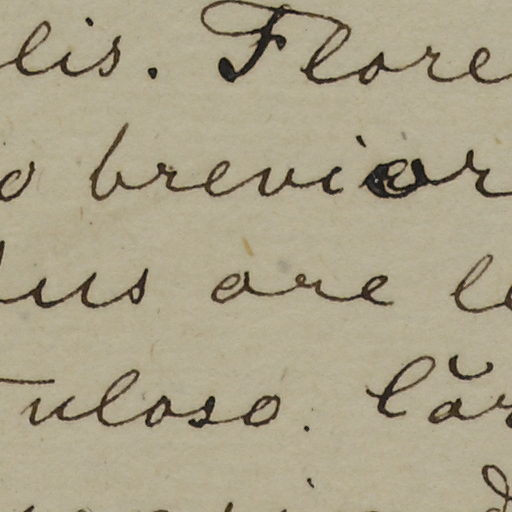 lis. Flore
o brevior
us ore le
uloso. Căr